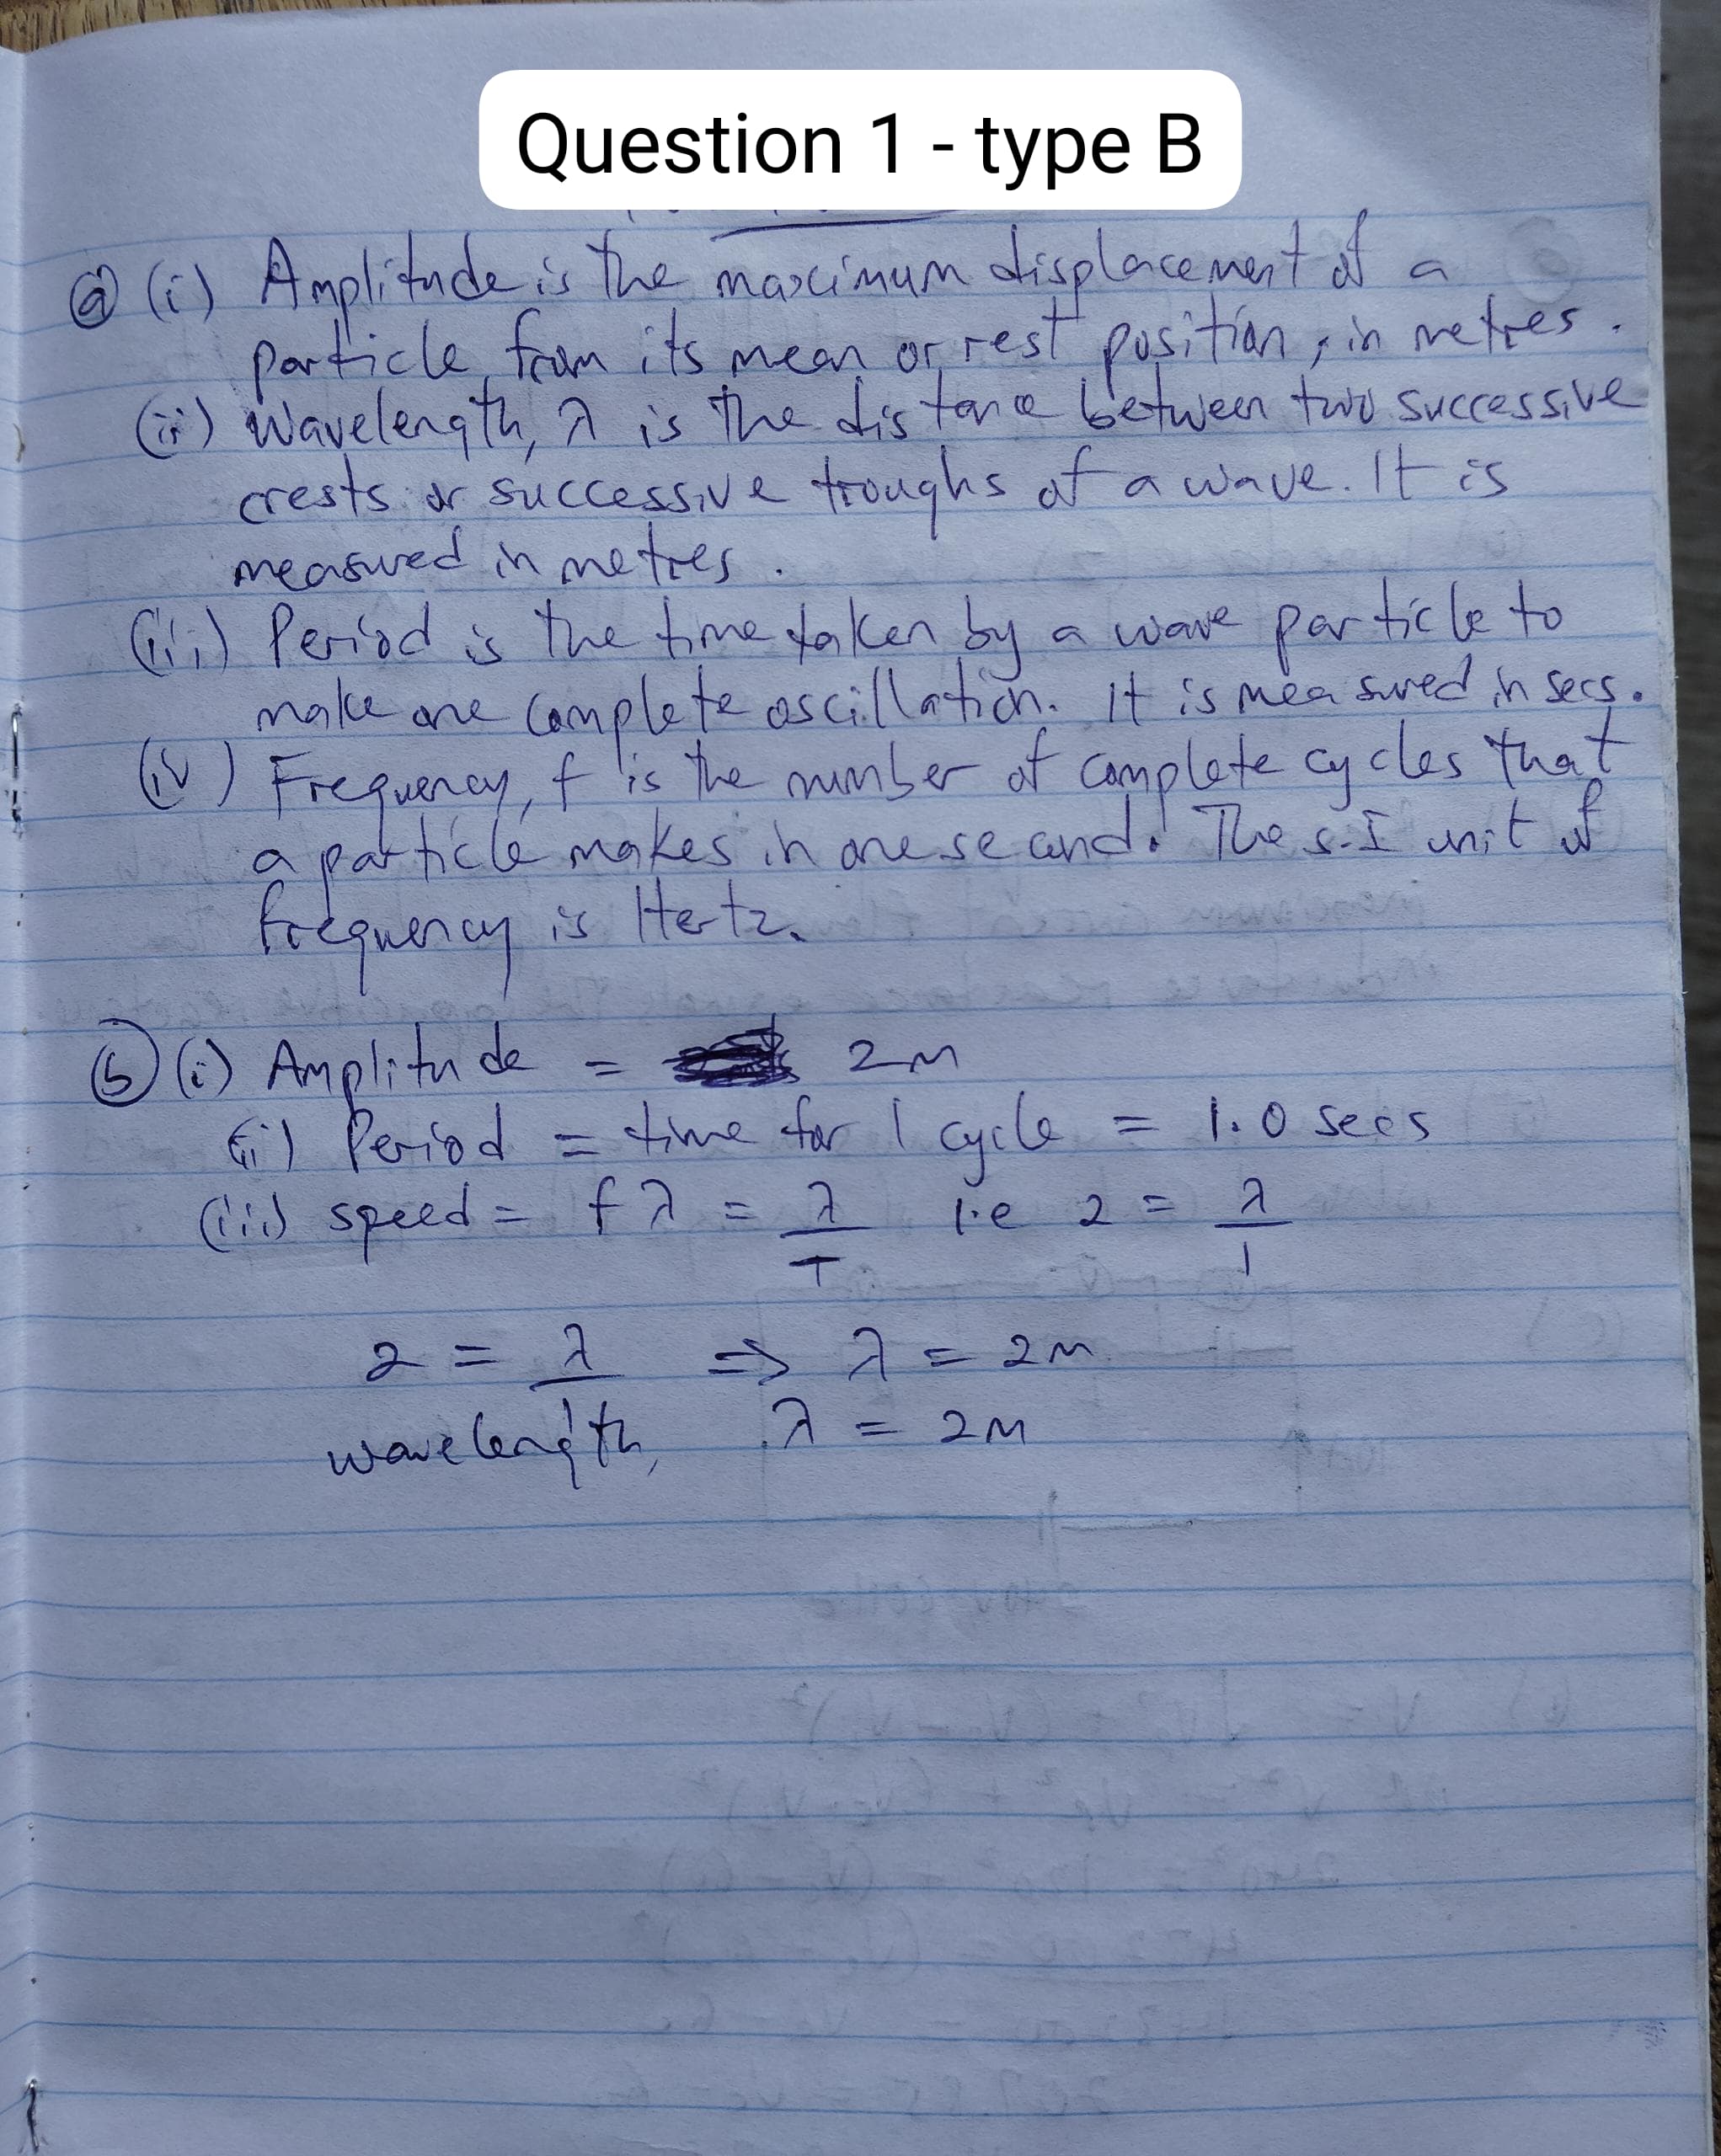 Question 1 - type B
(a) (i) Amplitude is the maximum displacement of a
particle from its mean or rest position, in metres.
(ii) Wavelength, λ is the distance between two successive
crests or successive troughs of a wave. It is
measured in metres.
(iii) Period is the time taken by a wave particle to
make one complete oscillation. It is measured in secs.
(iv) Frequency, f is the number of complete cycles that
a particle makes in one second. The S.I unit of
frequency is Hertz.
(b) (i) Amplitude = 2m
(ii) Period = time for 1 cycle = 1.0 secs
(iii) speed = fλ = λ/T i.e 2 = λ/1
2 = λ/1 => λ = 2m
wavelength, λ = 2m